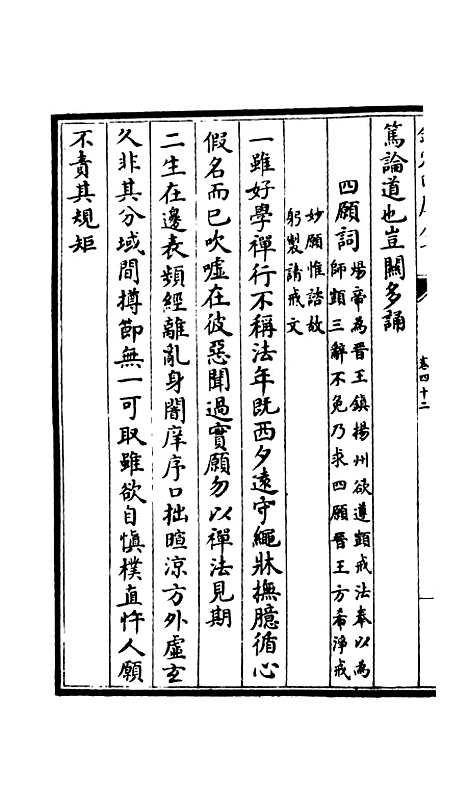 卷四十二
篤論道也豈關多誦
四願詞
煬帝為晉王鎮揚州欲遵顗戒法奉以為
師顗三辭不免乃求四願晉王方希淨戒
妙願惟諮故
躬製請戒文
一雖好學禪行不稱法年既西夕遠守繩牀撫臆循心
假名而已吹噓在彼惡聞過實願勿以禪法見期
二生在邊表頻經離亂身闇庠序口拙暄涼方外虛玄
久非其分域間撙節無一可取雖欲自慎樸直忤人願
不責其規矩